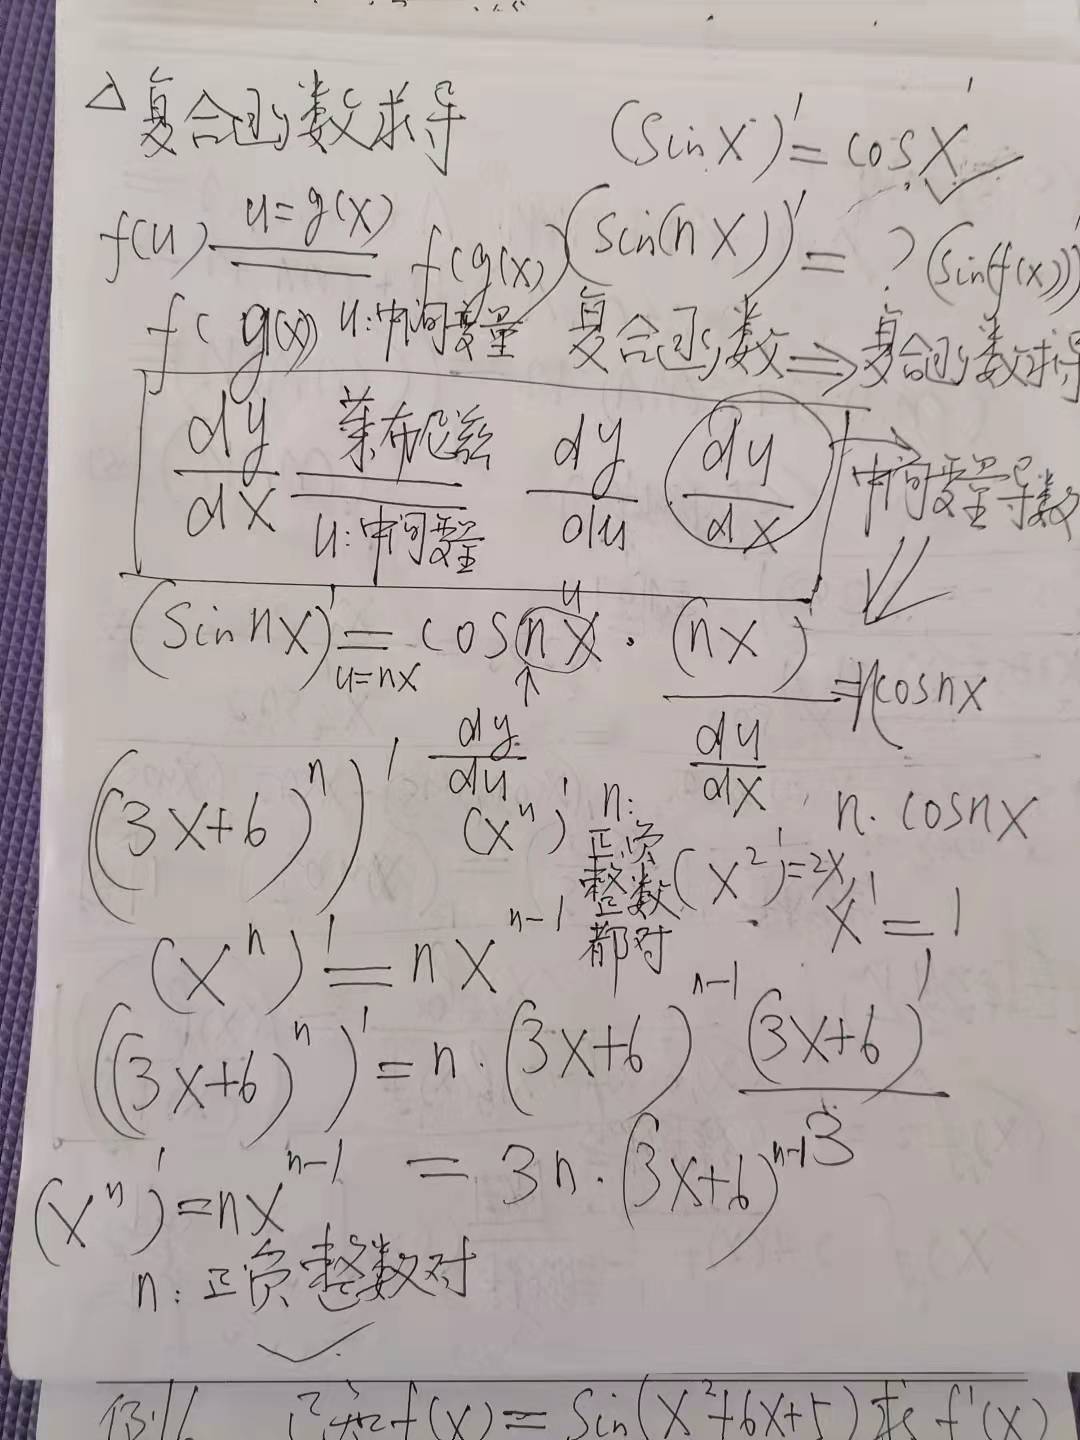 △复合函数求导
(sinx)' = cosx
f(u) u=g(x) f(g(x))
(sin(nx))' = ? (sin(f(x)))'
f(g(x)) u:中间变量 复合函数⇒复合函数求导
dy/dx 莱布尼兹 u:中间变量 dy/du du/dx → 中间变量导数
(sinnx)' = cosnx · (nx)' = ncosnx
u=nx ↑ u
dy/du du/dx n·cosnx
((3x+6)^n)' (x^n)' n:正负整数都对 (x²)'=2x x'=1
(x^n)' = nx^(n-1)
((3x+6)^n)' = n·(3x+6)^(n-1) (3x+6)'
3
= 3n·(3x+6)^(n-1)
(x^n)' = nx^(n-1)
n:正负整数对
已知f(x)=sin(x²+6x+5)求f'(x)